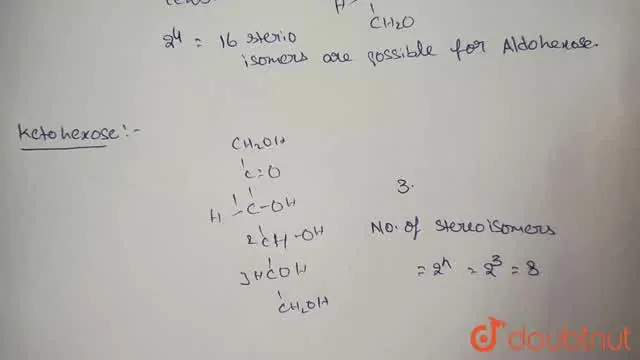 H
CH2O
2^4 = 16 sterio
isomers are possible for Aldohexose.
Ketohexose:-
CH2OH
C=O
H-C-OH
2CH-OH
3HCOH
CH2OH
3.
No. of stereoisomers
=2^n = 2^3 = 8
doubtnut